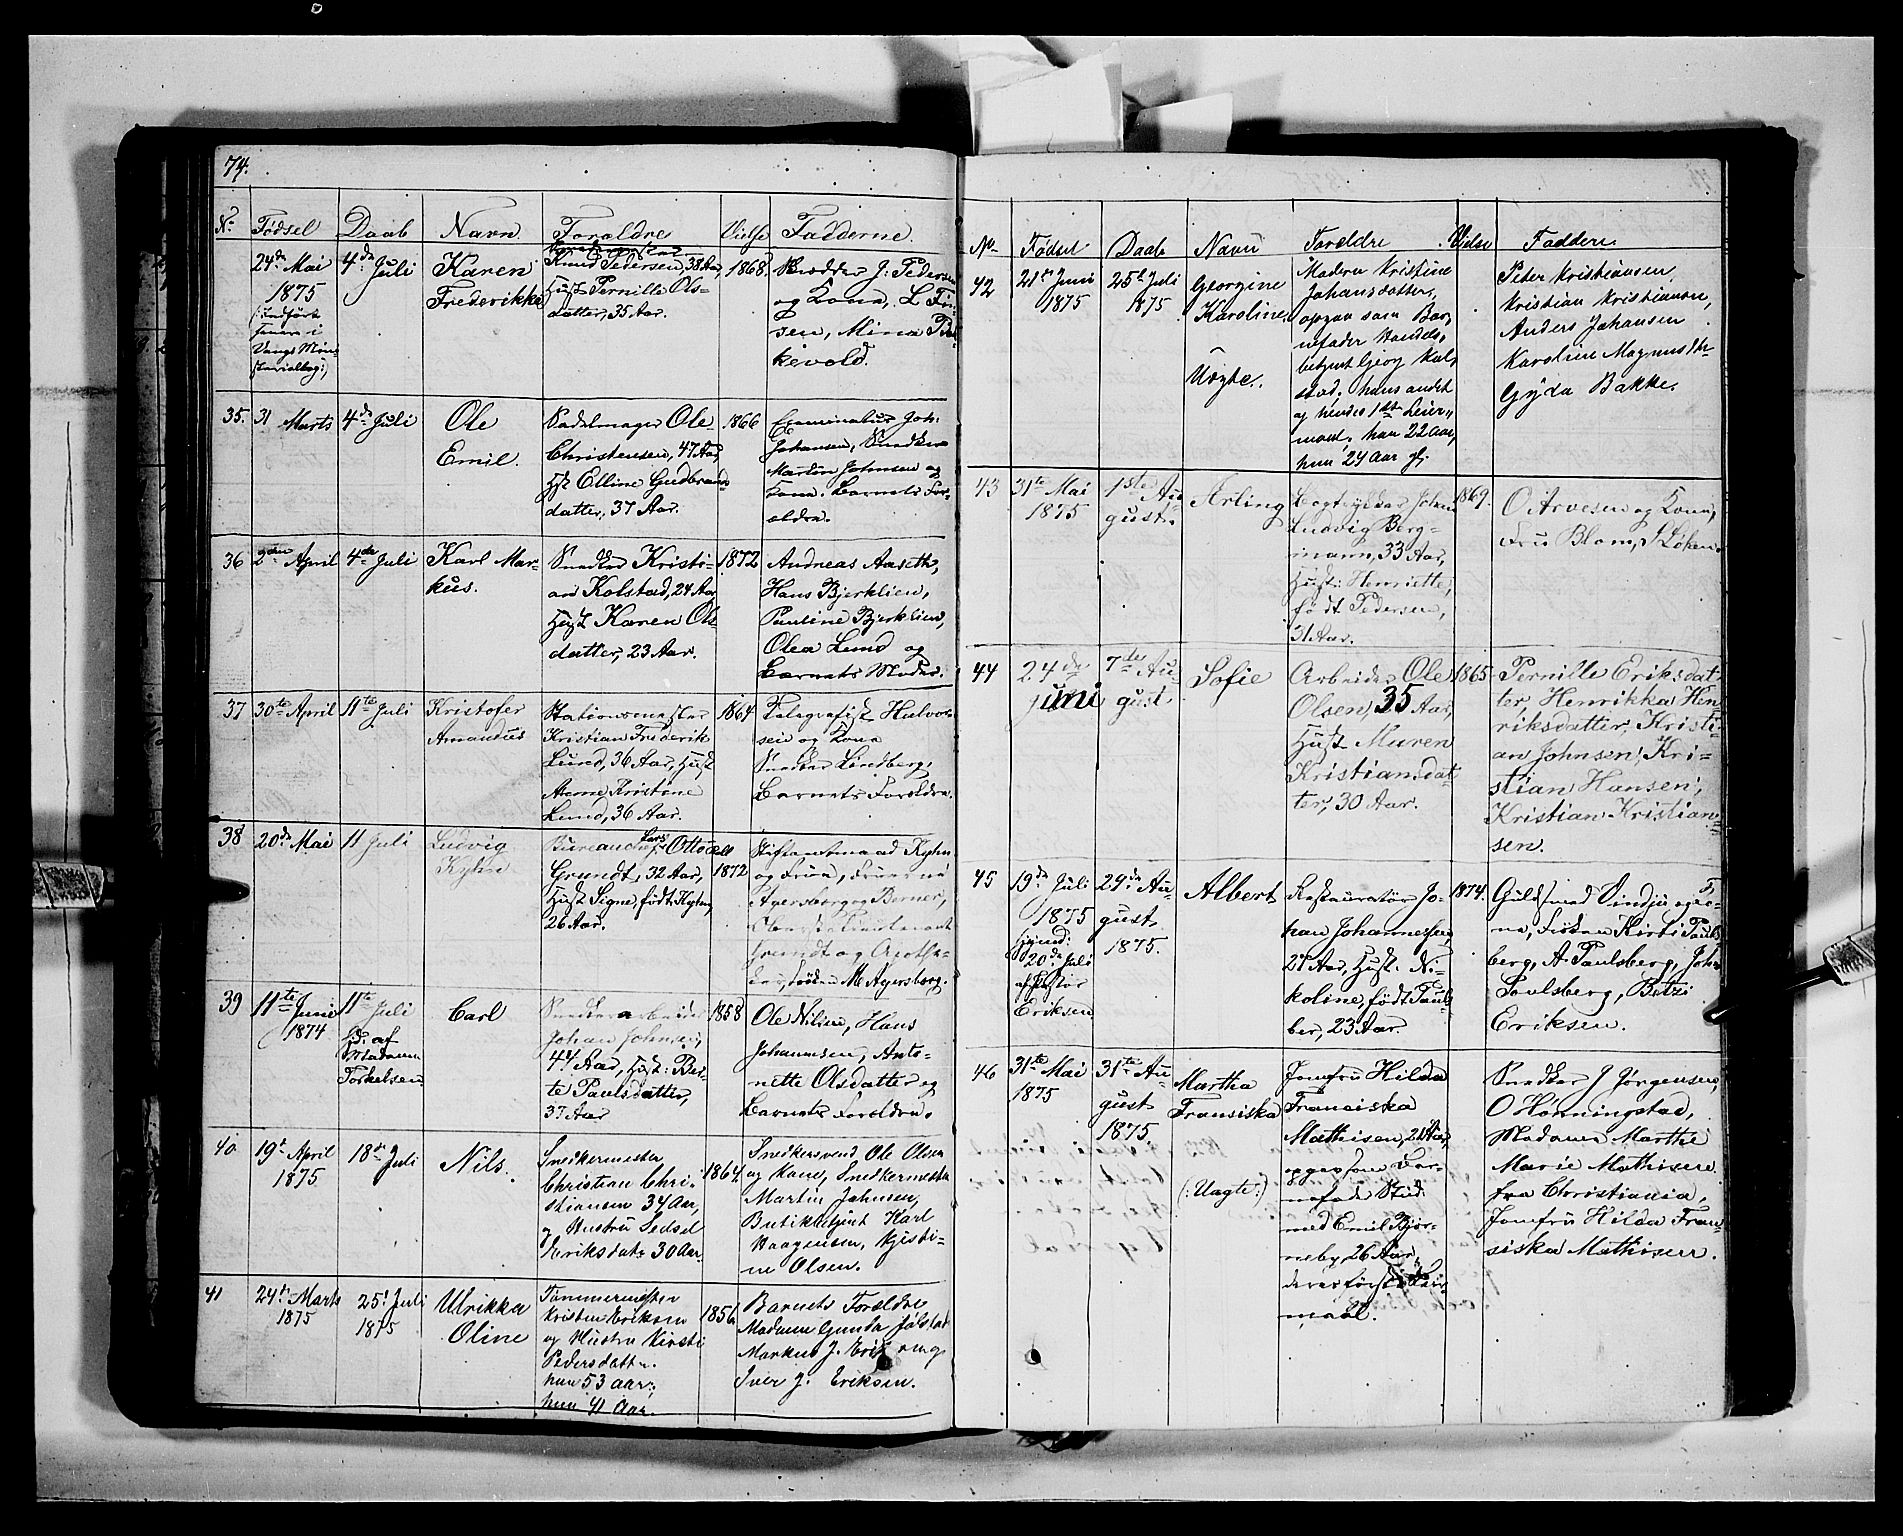 74.
No. Fødsel Daab Navn. Forældre Vielse Fadderne.
24de Mai 1875
4de Juli
Karen
Frederikke
Knud Pedersen, 38 Aar,
Hust. Pernille Ols-
datter, 35 Aar.
1868.
J. Peders
og Kona, L.
sen, Mina
kevold.
35. 31 Marts
4de Juli
Ole
Emil.
Sadelmager Ole
Christensen, 47 Aar,
Hst. Elline Gudbrands
datter, 37 Aar.
1866
Examinatus Joh.
Johansen, Snedker
Martin Johnsen og
Kona. Barnets For-
ældre.
36 2den April
4de Juli
Karl Mar-
kus.
Snedker Kristi-
an Kolstad, 24 Aar
Hust. Karen Ols
datter, 23 Aar.
1872
Andreas Aaseth,
Hans Bjerklien,
Pauline Bjerklien,
Olea Lund og
Barnets Moder.
37 30te April
11te Juli
Kristofer
Amandus
Stationsmester
Kristian Frederik
Lund, 36 Aar, Hust
Anne Kristine
Lund, 36 Aar.
1864
Telegrafist Halvor-
sen og Kona
Snedker Lindberg,
Barnets Forældre.
38 20de Mai
11 Juli
Ludvig
Kyhn
Bureauchef Lars Otto
Grundt, 32 Aar,
Hust Signe, født Kyhn,
26 Aar.
1872
Stiftamtmand Kyhn
og Frue, Fruerne
Ayersborg og Berner,
Oberstlieutenant
Grundt og Apothe-
Frøken M. Ayersborg.
39 11te Juni
1874
11te Juli
Hd. af
Madame
Torkelsen
Carl
Snedkerarbeider
Johan Johnsen,
44 Aar, Hust: Ber-
te Paulsdatter,
37 Aar
1858
Ole Nilsen, Hans
Johannesen, Anto-
nette Olsdatter og
Barnets Forældre.
40 19de April
1875
18de Juli
Nils.
Snedkermester
Christian Chri-
stiansen 34 Aar,
og Hustru Sedsel
Eriksdatr 30 Aar
1864.
Snedkersvend Ole Olsen
og Kone, Snedkermester
Martin Johnsen,
Butikbetjent Karl
Haagensen, Kjisti-
ne Olsen.
41 24de Marts
1875
25de Juli
1875
Ulrikka
Oline
Tømmermester
Kristen Eriksen
og Hustru Kirsti
Pedersdattr.
han 53 aar,
hun 41 Aar.
1856
Barnets Forældre
Madame Gunda Jølstad
Markus J. og
Iver J. Eriksen.
No. Fødsel Daab Navn Foreldre Vielse Faddere.
42 21de Juni
1875
25de Juli
1875
Georgine
Karoline.
Uægte.
Moderen Kristine
Johansdatter,
opgav som Bar-
nefader Handels-
betjent Georg Kol-
stad, hans andet
og hendes 1ste Leier-
maal, han 22 Aar,
hun 24 Aar gl.
Peter Kristiansen,
Kristian Kristiansen,
Anders Johansen
Karoline Magnus
Gyda Bakke.
43 31te Mai
1875
1ste Au-
gust.
Arling
Bogtrykker Johan
Ludvig Berg-
mann, 33 Aar,
Hust: Henriette,
født Pedersen,
31 Aar.
1869.
O Arvesen og Kona,
Fru Blom, S Løken.
44 24de
Juni
7de Au-
gust
Sofie
Arbeider Ole
Olsen, 35 Aar,
Hust Maren
Kristiansdat
ter, 30 Aar.
1865
Pernille Eriksdat
ter, Henrikka Hen
riksdatter, Kristi-
an Johnsen, Kri-
stian Hansen,
Kristian Kristian-
sen.
45 19de Juli
1875
hjmd:
20de Juli
af Pastor
Eriksen
29de Au-
gust
1875.
Albert
Restauratør Jo-
han Johannesen,
27 Aar, Hust: Ni-
koline, født Pauls
ber, 23 Aar.
1874.
Guldsmed Vindju og Ko-
ne, Frøken Kirsti Pauls
berg, A. Paulsberg, John
Paulsberg, Betzi
Eriksen.
46 31te Mai
1875
31te Au-
gust
1875.
Martha
Fransiska
(: Uægte :)
Jomfru Hilda
Franciska
Mathisen, 21 Aar,
opgav som Bar-
nefader Stud.
med Emil Bjør-
neby, 26 Aar,
deres første Leier-
maal.
Snedker J Jørgensen,
O Hørningstad,
Madame Marthe
Marie Mathisen
fra Christiania,
Jomfru Hilda Fran-
siska Mathisen.